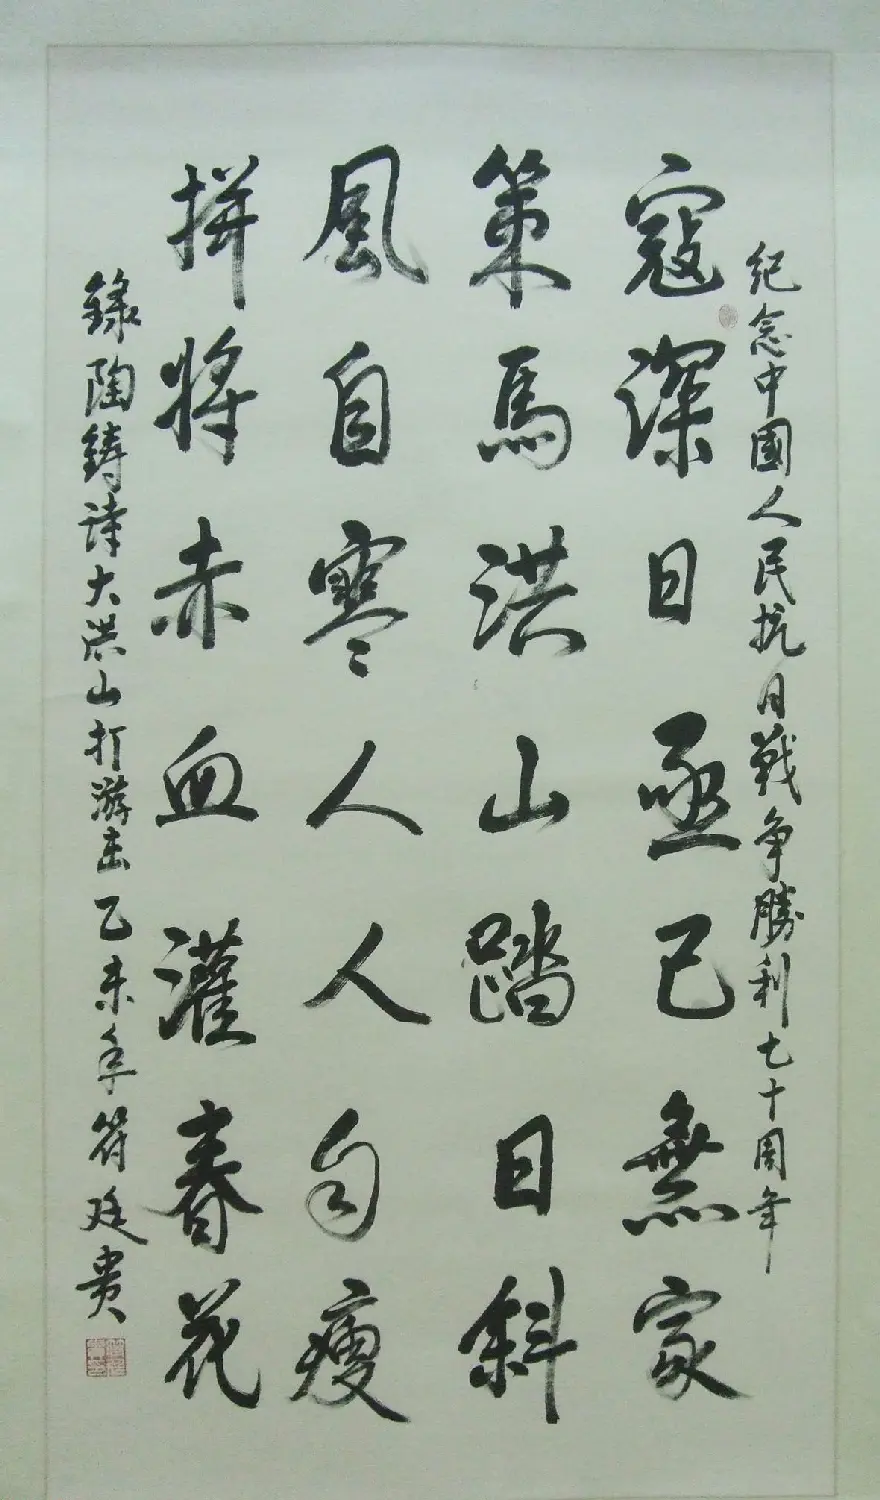 紀念中國人民抗日戰争勝利七十周年
寇深日亟已無家
策馬洪山踏日斜
風自寒人人自瘦
拼將赤血灌春花
錄陶鑄詩大洪山打游击乙未年符廷贵